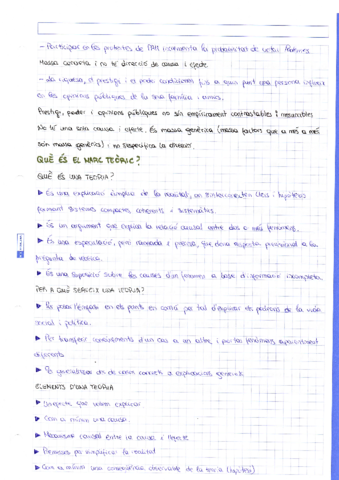 - Participar en les protestes de PAH incrementa la probabilitat de votar
Massa concreta i no té direcció de causa i efecte
- La riquesa, el prestigi i el poder condicionen fins a quin punt una persona influeix
en les opinions públiques de la seva família i amics.
Prestigi, poder i opinions públiques no són empíricament contrastables i mesurables
No té una sola causa i efecte. És massa genèrica (massa factors que a més a més
són massa genèrics) i no especifica la direcció.
QUÈ ÉS EL MARC TEÒRIC?
QUÈ ÉS UNA TEORIA?
▶ És una explicació àmplia de la realitat, on s'interconnecten idees i hipòtesis
formant sistemes compactes, coherents i sistemàtics.
▶ És un argument que explica la relació causal entre dos o més fenòmens.
▶ És una especulació, però raonada i precisa, que dona resposta provisional a la
pregunta de recerca.
▶ És una suposició sobre les causes d'un fenomen a base d'informació incompleta
PER A QUÈ SERVEIX UNA TEORIA?
▶ Es posa l'èmfasi en els punts en comú per tal d'explicar els patrons de la vida
social i política.
▶ Per transferir coneixements d'un cas a un altre, i per fenòmens aparentment
diferents
▶ Es generalitza de casos concrets a explicacions generals
ELEMENTS D'UNA TEORIA
▶ L'efecte que volem explicar
▶ Com a mínim una causa.
▶ Mecanisme causal entre la causa i l'efecte
▶ Premisses per simplificar la realitat
▶ Com a mínim una conseqüència observable de la teoria (hipòtesi)